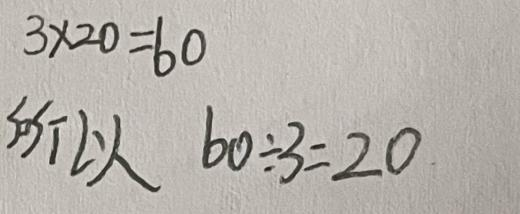 3×20=60
所以 60÷3=20